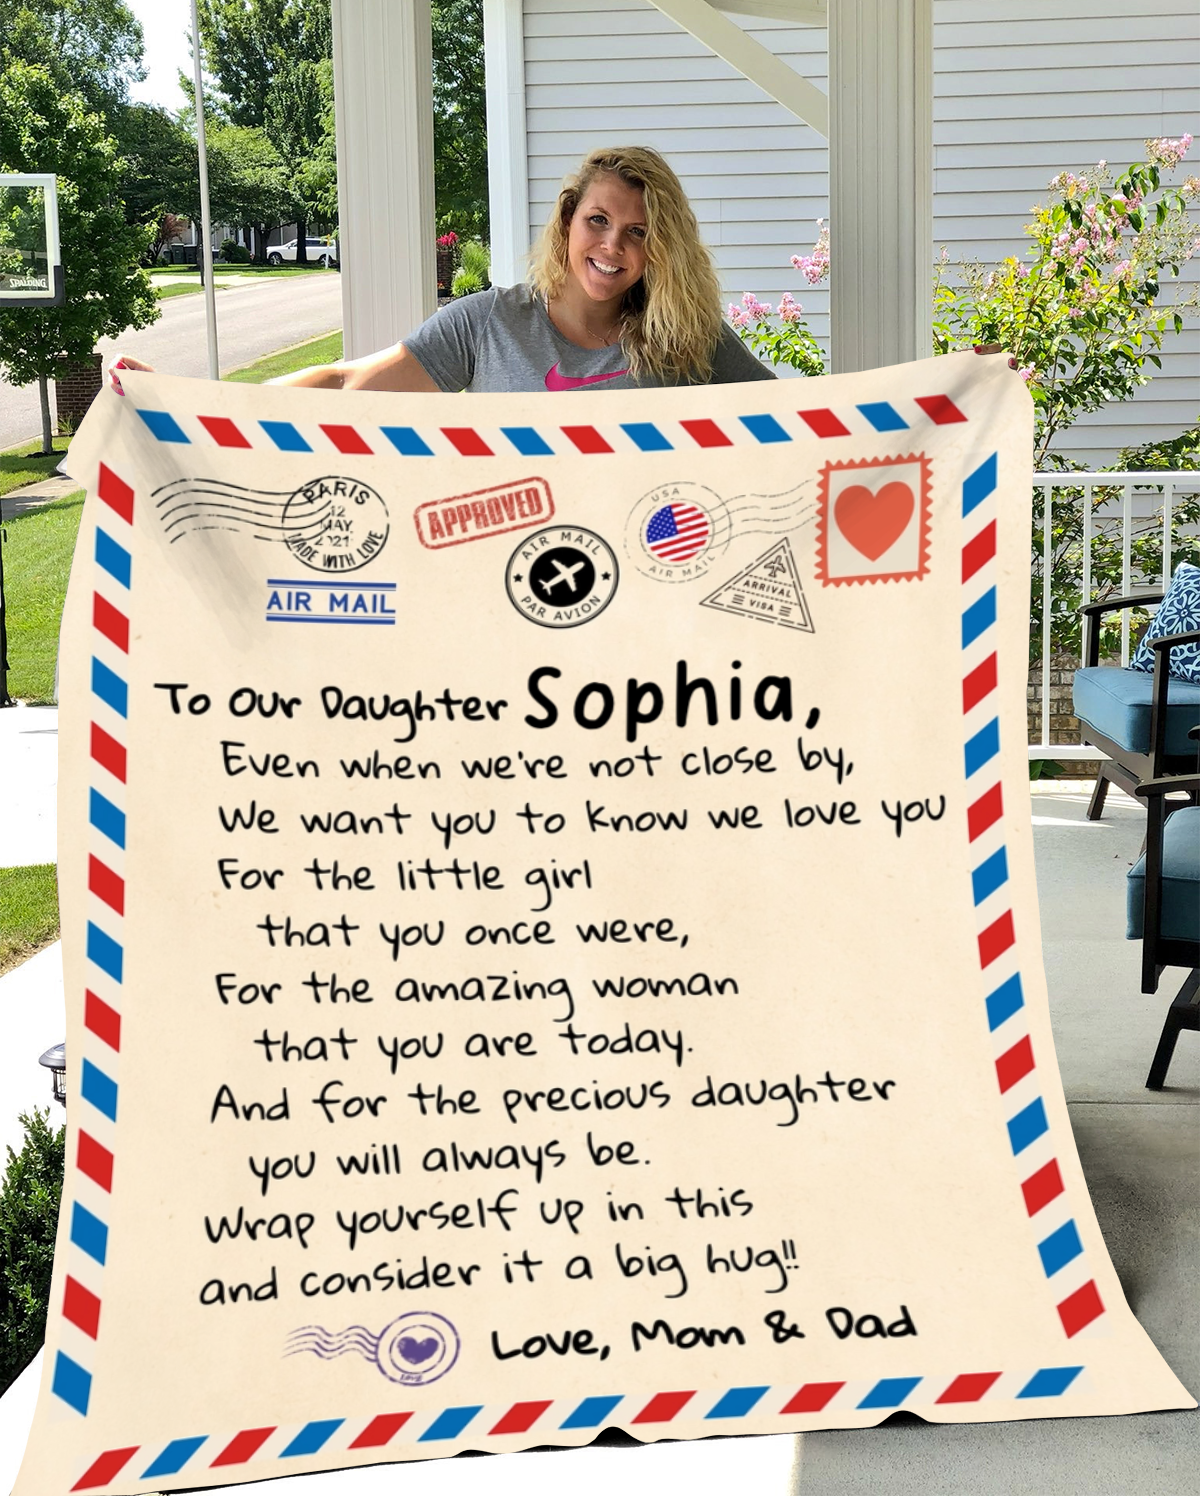 SPALDING
PARIS
12
MAY
2021
MADE WITH LOVE
APPROVED
AIR MAIL
PAR AVION
USA
AIR MAIL
ARRIVAL
VISA
AIR MAIL
To Our Daughter Sophia,
Even when we're not close by,
We want you to know we love you
For the little girl
that you once were,
For the amazing woman
that you are today.
And for the precious daughter
you will always be.
Wrap yourself up in this
and consider it a big hug!!
Love, Mom & Dad